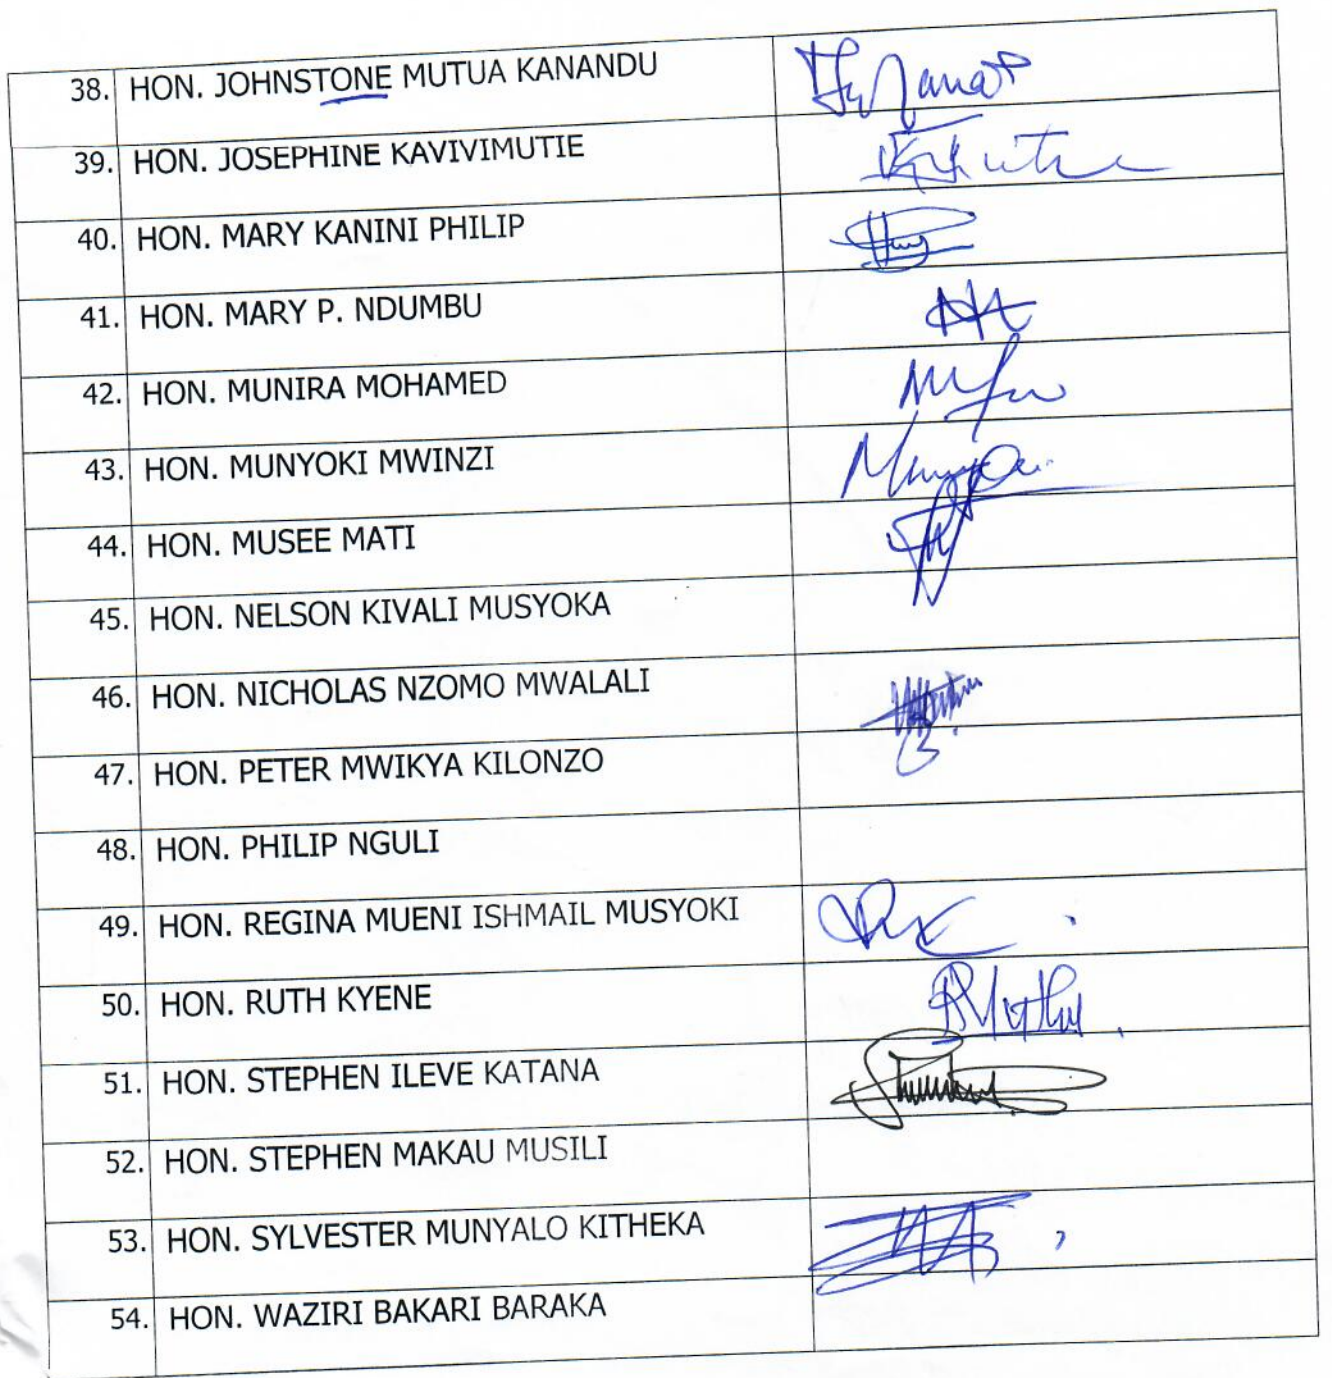 38. HON. JOHNSTONE MUTUA KANANDU
39. HON. JOSEPHINE KAVIVIMUTIE
40. HON. MARY KANINI PHILIP
41. HON. MARY P. NDUMBU
42. HON. MUNIRA MOHAMED
43. HON. MUNYOKI MWINZI
44. HON. MUSEE MATI
45. HON. NELSON KIVALI MUSYOKA
46. HON. NICHOLAS NZOMO MWALALI
47. HON. PETER MWIKYA KILONZO
48. HON. PHILIP NGULI
49. HON. REGINA MUENI ISHMAIL MUSYOKI
50. HON. RUTH KYENE
51. HON. STEPHEN ILEVE KATANA
52. HON. STEPHEN MAKAU MUSILI
53. HON. SYLVESTER MUNYALO KITHEKA
54. HON. WAZIRI BAKARI BARAKA